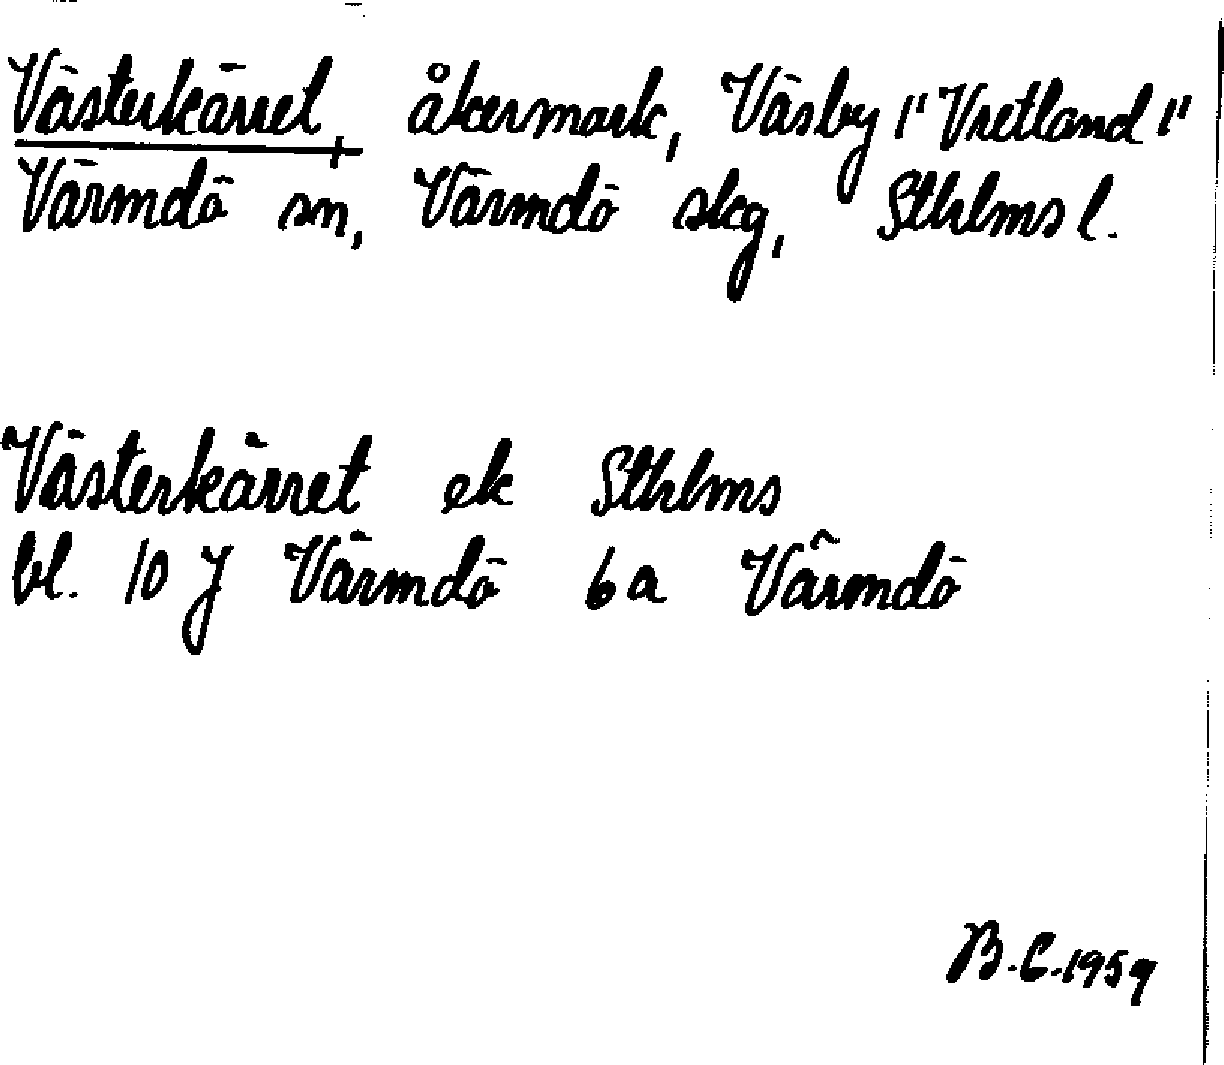 Västerkärret, åkermark, Väsby 1" Vretland 1"
Värmdö sn, Värmdö skg, Sthlms l.
Västerkärret ek Sthlms
bl. 10 J Värmdö 6a Värmdö
B.C. 1959